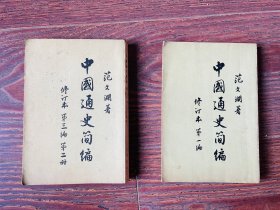 范文瀾著
中國通史简编
修订本 第三编 第二册
范文瀾著
中國通史简编
修订本 第一编